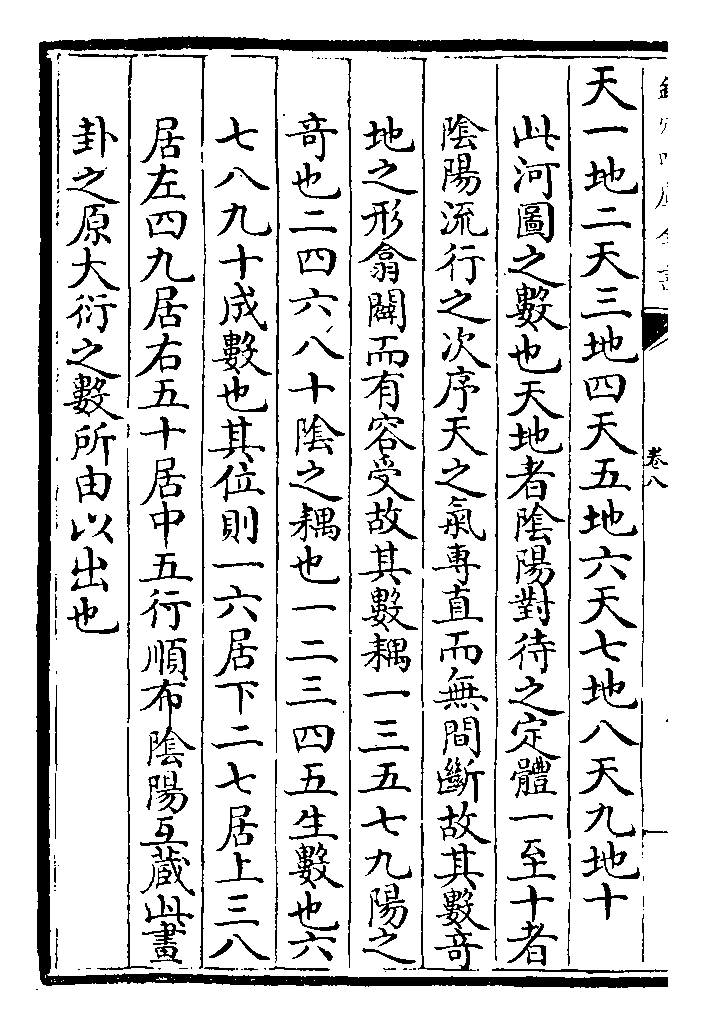 天一地二天三地四天五地六天七地八天九地十
此河圖之數也天地者陰陽對待之定體一至十者
陰陽流行之次序天之氣專直而無間斷故其數奇
地之形翕闢而有容受故其數耦一三五七九陽之
奇也二四六八十陰之耦也一二三四五生數也六
七八九十成數也其位則一六居下二七居上三八
居左四九居右五十居中五行順布陰陽互藏此畫
卦之原大衍之數所由以出也
卷八